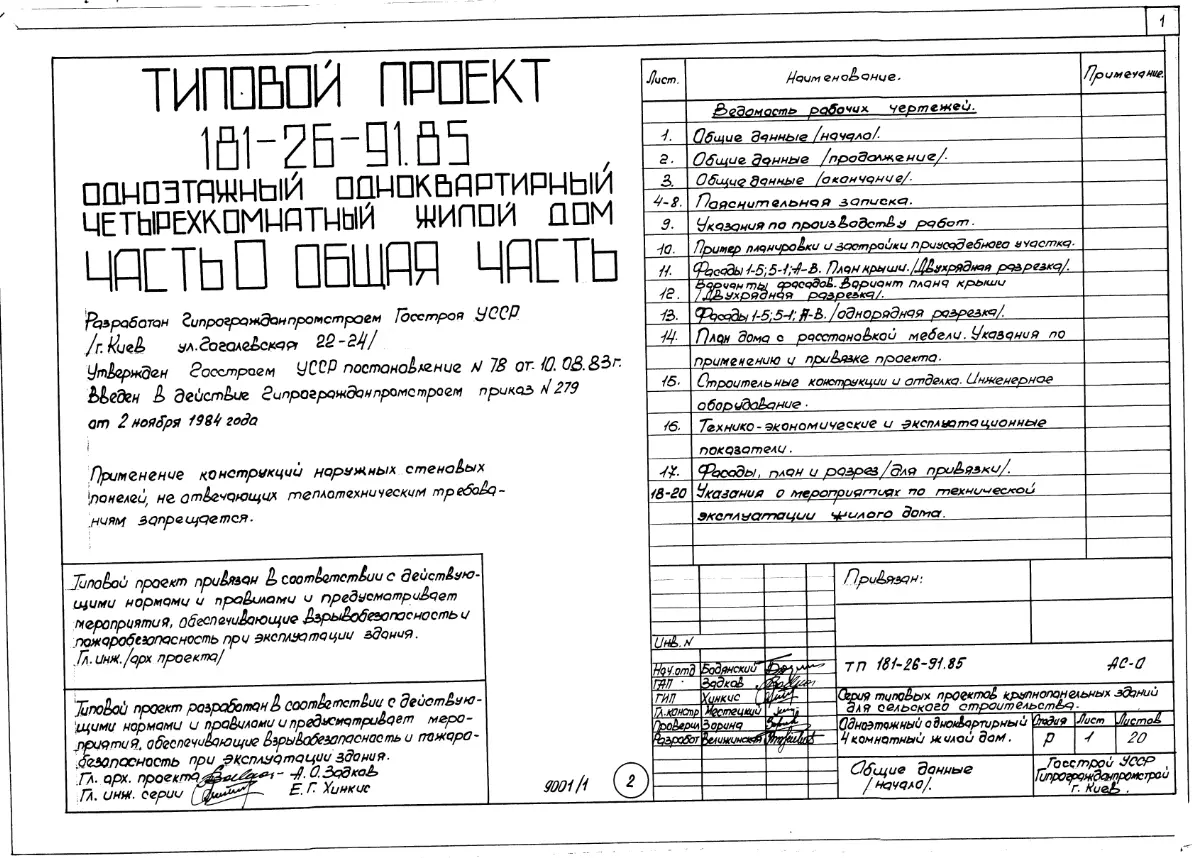 1
ТИПОВОЙ ПРОЕКТ
181-26-91.85
ОДНОЭТАЖНЫЙ ОДНОКВАРТИРНЫЙ
ЧЕТЫРЕХКОМНАТНЫЙ ЖИЛОЙ ДОМ
ЧАСТЬ 0 ОБЩАЯ ЧАСТЬ
Разработан Гипрогражданпромстроем Госстроя УССР
/г. Киев ул. Гоголевская 22-24/
Утвержден Госстроем УССР постановление N 78 от 10.08.83г.
Введен в действие Гипрогражданпромстроем приказ N 279
от 2 ноября 1984 года
Применение конструкций наружных стеновых
панелей, не отвечающих теплотехническим требова-
ниям запрещается.
Типовой проект привязан в соответствии с действую-
щими нормами и правилами и предусматривает
мероприятия, обеспечивающие взрывобезопасность и
пожаробезопасность при эксплуатации здания.
Гл. инж. /арх проекта/
Типовой проект разработан в соответствии с действую-
щими нормами и правилами и предусматривает меро-
приятия, обеспечивающие взрывобезопасность и пожаро-
безопасность при эксплуатации здания.
Гл. арх. проекта А.О. Задков
Гл. инж. серии Е.Г. Хинкис
9001/1 2
Лист. Наименование. Примечание.
Ведомость рабочих чертежей.
1. Общие данные /начало/.
2. Общие данные /продолжение/.
3. Общие данные /окончание/.
4-8. Пояснительная записка.
9. Указания по производству работ.
10. Пример планировки и застройки приусадебного участка.
11. Фасады 1-5; 5-1; А-В. План крыши. /Двухрядная разрезка/.
Варианты фасадов. Вариант плана крыши
12. /Двухрядная разрезка/.
13. Фасады 1-5; 5-1; А-В. /однорядная разрезка/.
14. План дома с расстановкой мебели. Указания по
применению и привязке проекта.
15. Строительные конструкции и отделка. Инженерное
оборудование.
16. Технико-экономические и эксплуатационные
показатели.
17. Фасады, план и разрез /для привязки/.
18-20 Указания о мероприятиях по технической
эксплуатации жилого дома.
Привязан:
Инв. N
Нач.отд Бодянский
ГАП Задков
ГИП Хинкис
Гл.констр Местецкий
Проверил Зорина
Разработ Велижинская
ТП 181-26-91.85 АС-0
Серия типовых проектов крупнопанельных зданий
для сельского строительства.
Одноэтажный одноквартирный
4 комнатный жилой дом.
Стадия Лист Листов
Р 1 20
Общие данные
/начало/.
Госстрой УССР
Гипрогражданпромстрой
г. Киев.